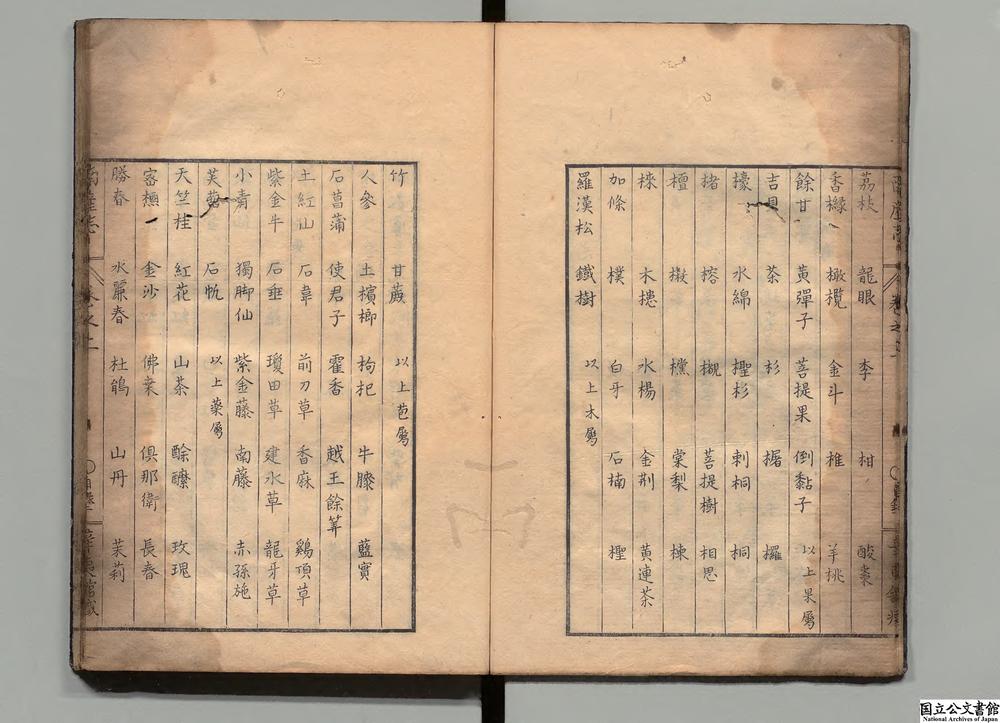 荔枝 龍眼 李 柑 酸棗
香櫞 橄欖 金斗 椎 羊桃
餘甘 黃彈子 菩提果 倒黏子 以上果屬
吉貝 茶 杉 椐 欏
檺 水綿 檉杉 刺桐 桐
楮 榕 櫬 菩提樹 相思
檀 檓 欓 棠梨 楝
棶 木槵 水楊 金荊 黃連茶
加條 樸 白牙 石楠 檉
羅漢松 鐵樹 以上木屬
竹 甘蔗 以上苞屬
人參 土檳榔 拘杞 牛膝 藍實
石菖蒲 使君子 霍香 越王餘筭
土紅山 石韋 前刀草 香麻 鷄項草
紫金牛 石垂 瓊田草 建水草 龍牙草
小青 獨脚仙 紫金藤 南藤 赤孫施
石帆 以上藥屬
天竺桂 紅花 山茶 酴醾 玫瑰
金沙 佛桑 俱那衛 長春
勝春 水麗春 杜鵑 山丹 茉莉
国立公文書館
National Archives of Japan